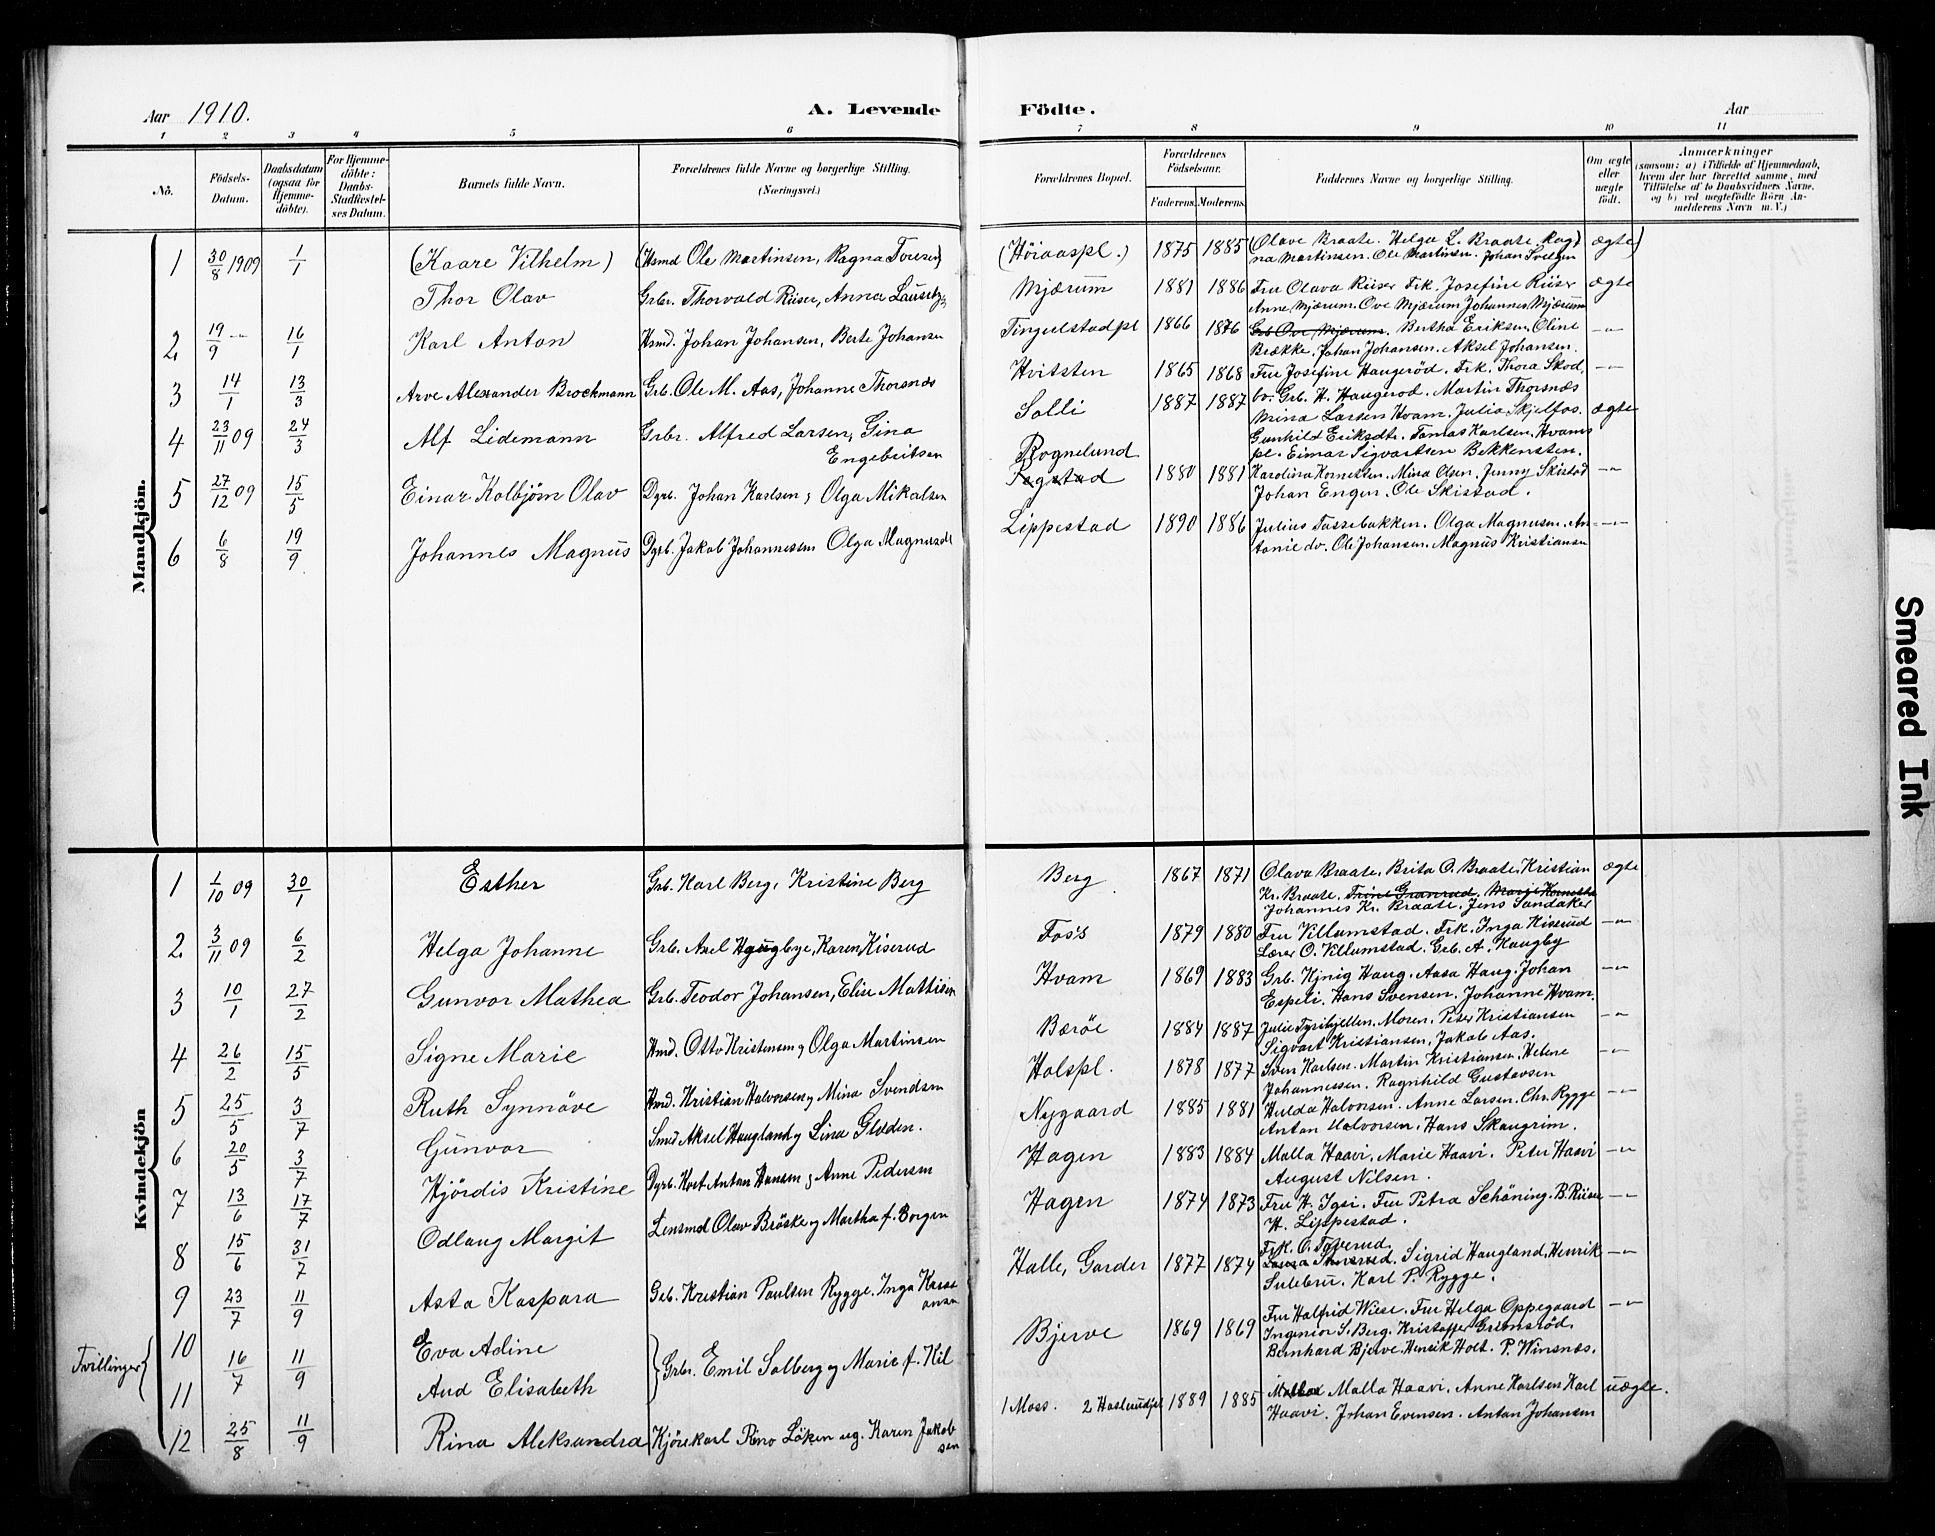 Aar 1910.
A. Levende
Födte.
Aar
1 2 3 4 5 6
7 8 9 10 11
Nö.
Födsels-
Datum.
Daabsdatum
(ogsaa for
Hjemme-
döbte).
For Hjemme-
döbte:
Daabs-
Stadfæstel-
ses Datum.
Barnets fulde Navn.
Forældrenes fulde Navne og borgerlige Stilling.
(Næringsvei.)
Forældrenes Bopæl.
Forældrenes
Födselsaar.
Faderens. Moderens.
Faddernes Navne og borgerlige Stilling.
Om ægte
eller
uægte
födt.
Anmærkninger
(saasom: a) i Tilfælde af Hjemmedaab,
hvem der har forrettet samme, med
Tilföielse af to Daabsvidners Navne,
og b) ved uægtefödte Börn An-
melderens Navn m. V.)
Mandkjön.
1 30/8 1909 1/1 (Kaare Vilhelm) (Hsmd Ole Martinsen, Ragna Toresen)
Thor Olav Grbr. Thorvald Riiser, Anna
2 19/9 -"- 16/1 Karl Anton Hsmd. Johan Johansen, Berte Johansen
3 14/1 13/3 Arve Alexander Brockmann Grb. Ole M. Aas, Johanne Thorsnæs
4 23/11 09 24/3 Alf Lidemann Grbr. Alfred Larsen, Gina
Engebritsen
5 27/12 09 15/5 Einar Kolbjörn Olav Dyrb. Johan Karlsen, Olga Mikalsen
6 6/8 19/9 Johannes Magnus Dyrb. Jakob Johannessen Olga Magnusdt
(Höiaaspl.) 1875 1885 (Olave Braate. Helga L. Braate. Rag) ægte)
na Martinsen. Ole Martinsen. Johan
Mjærum 1881 1886 Fru Olava Riiser Frk. Josefine Riiser ægte
Anne Mjærum. Ove Mjærum Johannes Mjærum
Tingulstadpl 1866 1876 Grb Ove Mjærum. Bertha Eriksen, Oline -"-
Brække. Johan Johansen. Aksel Johansen.
Hvitsten 1865 1868 Fru Josefine Haugeröd. Frk. Thora Skod, -"-
bo. Grb. H. Haugerod. Martin Thorsnæs
Solli 1887 1887 Mina Larsen Hvam. Julia Skjelfos. ægte
Gunhild Eriksdtr. Tomas Karlsen. Hvams
Rognelund pl. Eimar Sigvartsen Bekkensten.
Fagstad 1880 1881 Karolina Kornelsen. Mina Olsen. Jenny Skistad -"-
Johan Engen. Ole Skistad.
Lippestad 1890 1886 Julius Tassebakken. Olga Magnusen. An- -"-
tonie do. Ole Johansen. Magnus Kristiansen
Kvindekjön
1 1/10 09 30/1 Esther Grb. Karl Berg, Kristine Berg
2 3/11 09 6/2 Helga Johanne Grb. Axel Haugbye, Karen Kiserud
3 10/1 27/2 Gunvor Mathea Grb. Teodor Johansen, Elise Mattisen
4 26/2 15/5 Signe Marie Hmd. Otto Kristensen og Olga Martinsen
5 25/5 3/7 Ruth Synnöve Hmd. Kristian Halvorsen og Mina Svendsen
6 20/5 3/7 Gunvor Smd Aksel Haugland og Lina Gladen.
7 13/6 17/7 Hjördis Kristine Dyrb. Kort Anton Hansen og Anne Pedersen
8 15/6 31/7 Odlaug Margit Lensmd Olav Bröske og Martha f. Borgen
9 23/7 11/9 Asta Kaspara Grb. Kristian Paulsen Rygge. Inga
Tvillinger { 10 16/7 11/9 Eva Adine
11 Aud Elisabeth } Grbr. Emil Solberg og Marie f. Kil
12 25/8 11/9 Rina Aleksandra Kjörekarl Rino Löken ug. Karen Jakob
sen
Berg 1867 1871 Olava Braate, Brita O. Braate, Kristian ægte
Kr. Braate. Trine Granrud. Marie
Johannes Kr. Braate. Jens Sandaker
Foss 1879 1880 Fru Villumstad. Frk. Inga Kiserud -"-
Lærer O. Villumstad. Grb. A. Haugby
Hvam 1869 1883 Grb. Haug. Aasa Haug. Johan -"-
Espeli. Hans Svensen. Johanne Hvam.
Bæröe 1884 1887 Julie Tyrihjellen. Moren. Peter Kristiansen -"-
Sigvart Kristiansen, Jakob Aas.
Holspl. 1878 1877 Sven Karlsen. Martin Kristiansen. Helene -"-
Johannessen. Ragnhild Gustavsen
Nygaard 1885 1881 Hulda Halvorsen. Anne Larsen. Chr. Rygge -"-
Anton Halvorsen, Hans Skaugrim.
Hagen 1883 1884 Malla Haavi, Marie Haavi. Peter Haavi -"-
August Nilsen.
Hagen 1874 1873 Fru H. Igsi. Fru Petra Schöning. B. Riiser -"-
H. Lippestad.
Frk. O. Taverud
Halle, Garder 1877 1874 Sigrid Haugland, Henrik -"-
Sulebru. Karl P. Rygge.
Bjerve 1869 1869 Fru Halfrid Wiese. Fru Helga Oppegaard -"-
Ingeniör S. Berg. Kristoffer Grönsröd.
Bernhard Bjerve. Henrik Holt. P. Winsnæs.
1 Moss. 2 Haslerudpl 1889 1885 Malla Haavi. Anne Karlsen Karl uægte.
Haavi. Johan Evensen. Anton Johansen
Smeared Ink